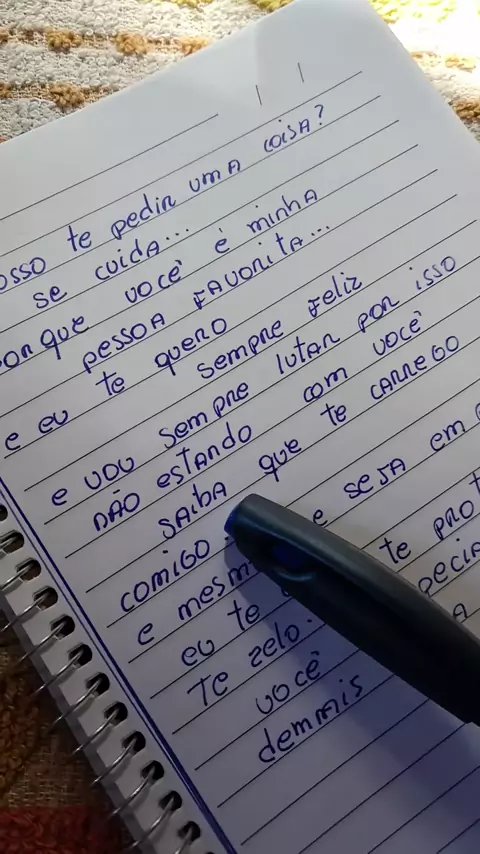 osso te pedir uma coisa?
se cuida...
porque você é minha
pessoa favorita...
e eu te quero
sempre feliz
e vou sempre lutar por isso
não estando com você
saiba que te carrego
comigo
e mesm e seja em
eu te te prot
te zelo. pecia
você a
demmais